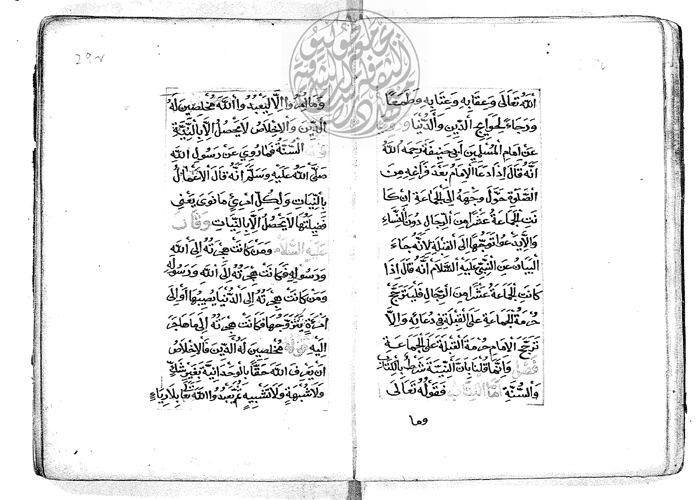 الله تعالى وعقابه وعتابه وطمعا
ورجاء لحوايج الدين والدنيا
عن امام المسلمين ابى حنيفة رحمه الله
انه قال اذا دعا الامام بعد فراغه من
الصلوة حول وجهه الى الجماعة ان كا
نت الجماعة عشرا من الرجال دون النساء
والا يدعو متوجها الى القبلة لانه جاء
البيان عن النبى عليه السلام انه قال اذا
كانت الجماعة عشرا من الرجال فليترجح
حرمة الجماعة على القبلة فى دعائه والا
ترجح الامام حرمة القبلة على الجماعة
فصل وانما قلنا بان النية شرط بالكتاب
والسنة اما الكتاب فقوله تعالى
وما
وما امروا الا ليعبدوا الله مخلصين له
الدين والاخلاص لا يحصل الا بالنية
السنة فما روى عن رسول الله
صلى الله عليه وسلم انه قال الاعمال
بالنيات ولكل امرئ ما نوى يعنى
فضيلتها لا تحصل الا بالنيات وقال
عليه السلام ومن كانت هجرته الى الله
ورسوله فكانت هجرته الى الله ورسوله
ومن كانت هجرته الى الدنيا يصيبها او الى
امرءة يتزوجها فكانت هجرته الى ما هاجر
اليه قوله مخلصين له الدين فالاخلاص
ان يعرف الله حقا بالوحدانية بغير شك
ولا شبهة ولا تشبيه ثم يعبدوا الله تعالى بلا رياء